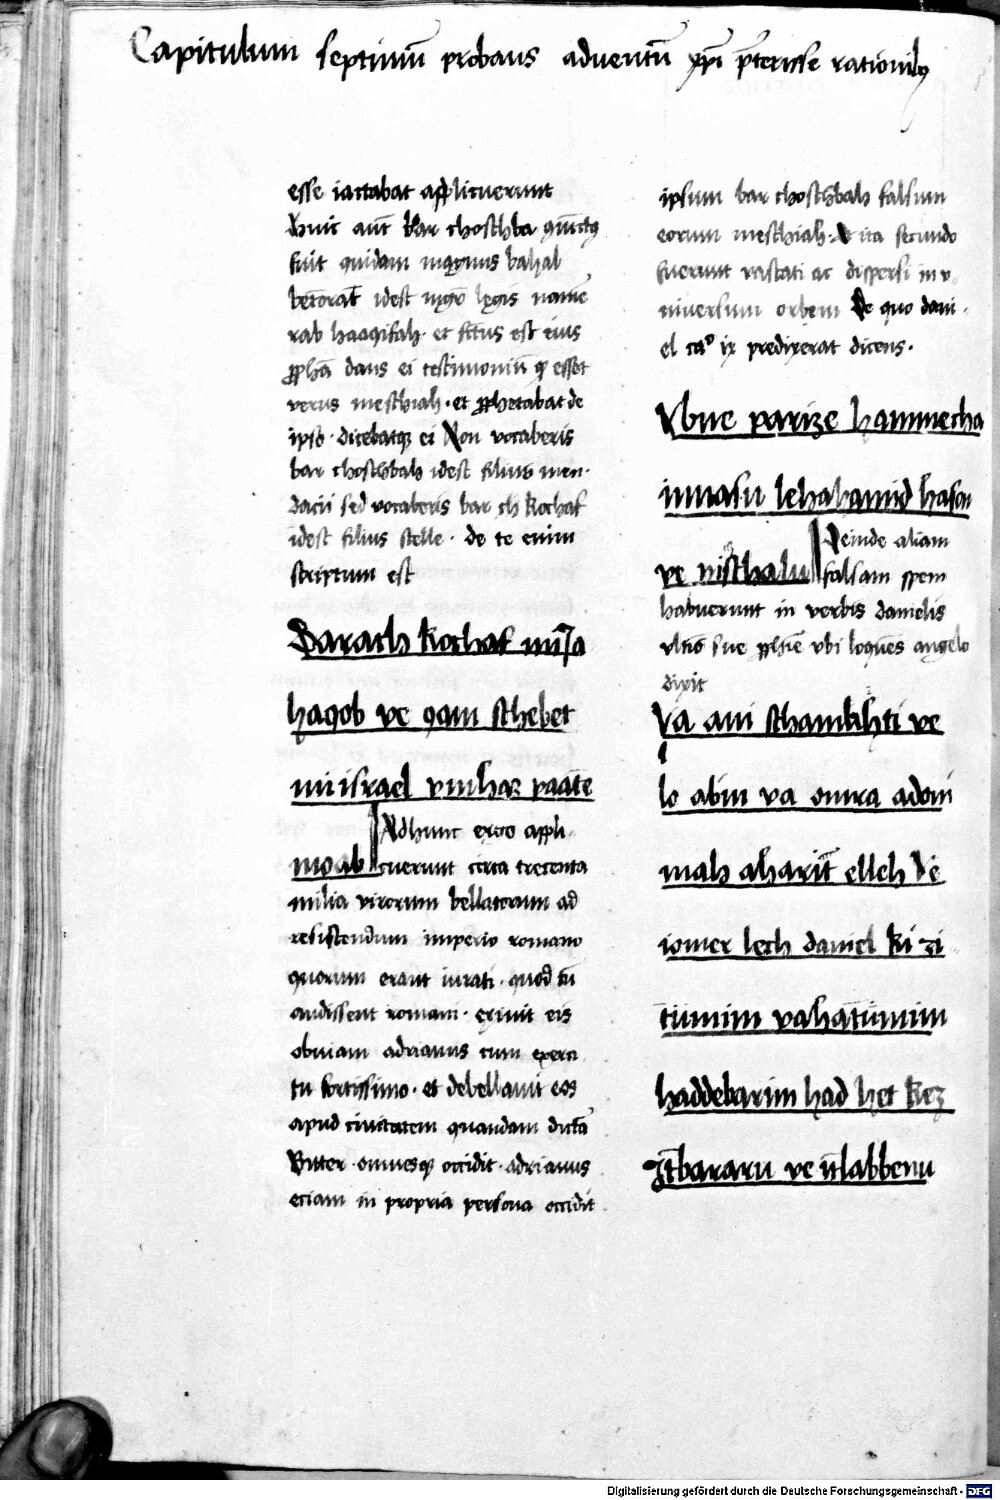 Capitulum septimū probans adventū xpī p̄terisse rationibꝯ
esse iactabat applicuerunt
huic aut̄ bar choschba qūictꝯ
fuit quidam magnus bahal
betorat̄ idest mgr̄o legis nomīe
rab haaqifah· et fct̄us est eius
ꝓphā dans ei testimoniū ꝙ esset
verus meschiah· et ꝓphetabat de
ipso· dicebatqꝫ ei Non vocaberis
bar choschbah idest filius men·
dacii sed vocaberis bar ch kochaf
idest filius stelle· de te enim
scriptum est
Darach kochaf mi Ja
haqob ve qam schebet
mi israel vmhaz paate
moab Adhunc ergo appli·
cuerunt circa trecenta
milia virorum bellatorum ad
resistendum imperio romano
quorum erant iurati· quod cū
audissent romani· exivit eis
obviam adrianus cum exerci
tu fortissimo· et debellavit eos
apud civitatem quandam dictā
Bitter· omnesqꝫ occidit· adrianus
eciam in propria persona occidit
ipsum bar choschbah falsum
eorum meschiah· Et ita secundo
fuerunt vastati ac dispersi in v·
niversum orbem De quo dani·
el ca⁰ ix predixerat dicens·
Vbne parize hammecha
innasu lehahamid hason
ve nischalu Deinde aliam
falsam spem
habuerunt in verbis danielis
vltīo sue ꝓphīe vbi loquēs angelo
dixit
Va ani schamahti ve
lo abin va omra adoni
mah aharit̄ elleh Ve
iomer lech daniel ki zi
tūmim vahatūmim
haddebarim had het kez
It̄bararu ve it̄labbenu
Digitalisierung gefördert durch die Deutsche Forschungsgemeinschaft - DFG